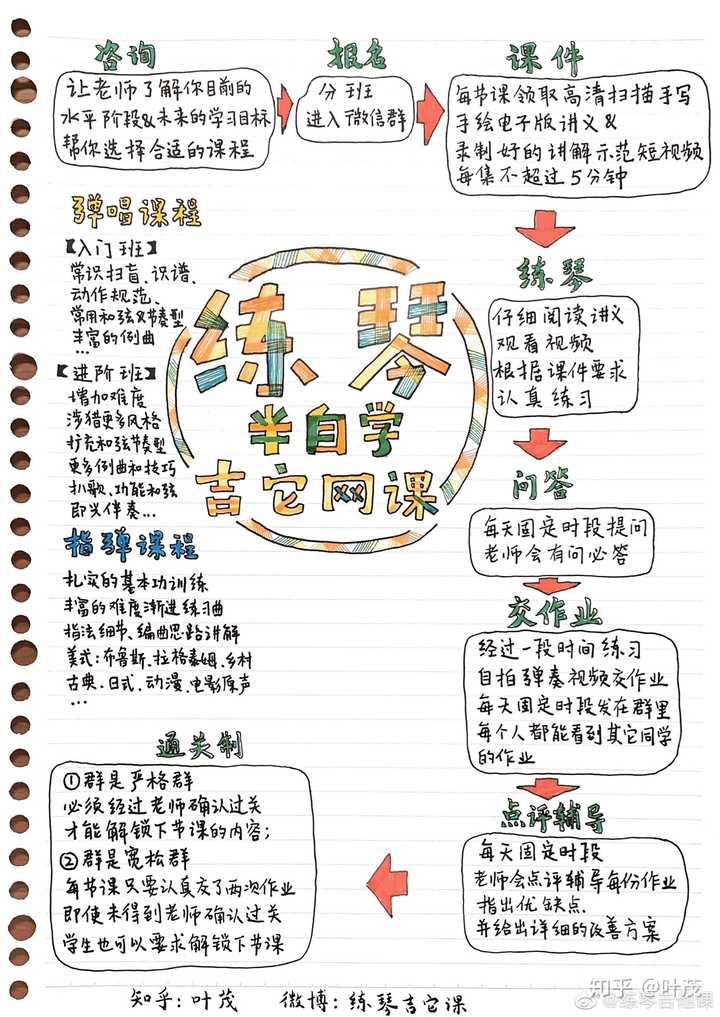 咨询
让老师了解你目前的
水平阶段&未来的学习目标
帮你选择合适的课程
报名
分班
进入微信群
课件
每节课领取高清扫描手写
手绘电子版讲义&
录制好的讲解示范短视频
每集不超过5分钟
练琴
仔细阅读讲义
观看视频
根据课件要求
认真练习
问答
每天固定时段提问
老师会有问必答
交作业
经过一段时间练习
自拍弹奏视频交作业
每天固定时段发在群里
每个人都能看到其它同学
的作业
点评辅导
每天固定时段
老师会点评辅导每份作业
指出优缺点
并给出详细的改善方案
通关制
①群是严格群
必须经过老师确认过关
才能解锁下节课的内容;
②群是宽松群
每节课只要认真交了两次作业
即使未得到老师确认过关
学生也可以要求解锁下节课
弹唱课程
【入门班】
常识扫盲、识谱、
动作规范、
常用和弦&节奏型
丰富的例曲
...
【进阶班】
增加难度
涉猎更多风格
扩充和弦节奏型
更多例曲和技巧
扒歌、功能和弦
即兴伴奏...
指弹课程
扎实的基本功训练
丰富的难度渐进练习曲
指法细节、编曲思路讲解
美式:布鲁斯、拉格泰姆、乡村
古典、日式、动漫、电影原声
...
练琴
半自学
吉它网课
知乎:叶茂 微博:练琴吉它课
知乎 @叶茂
@练琴吉他课